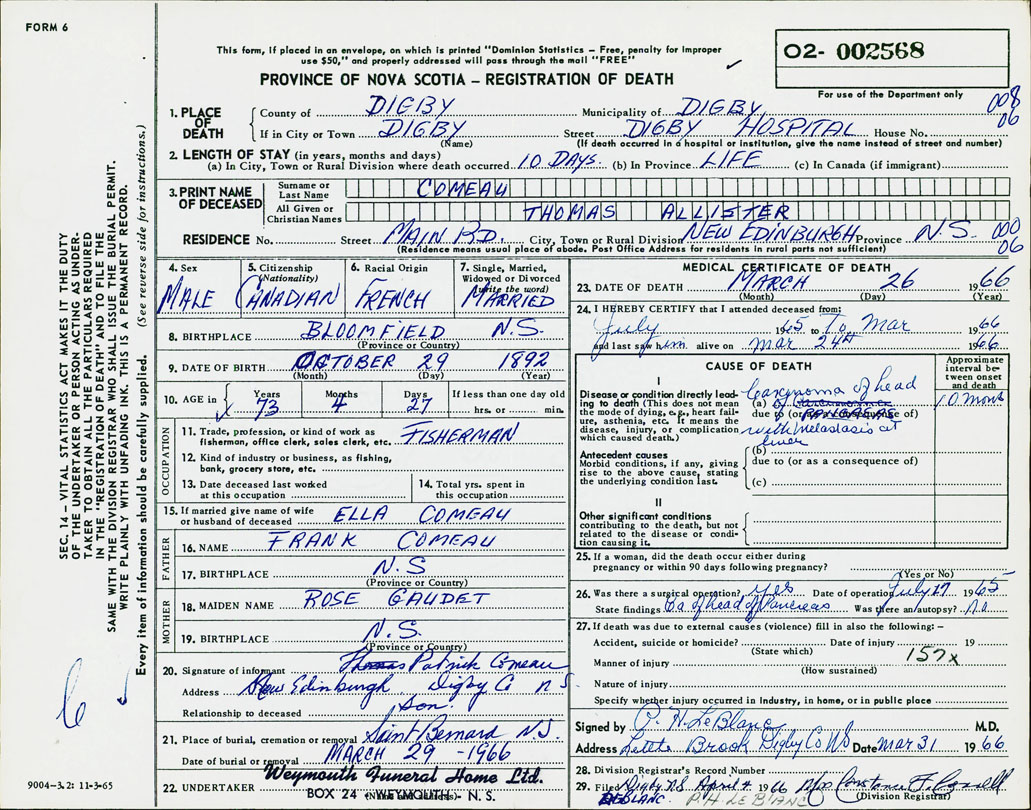 FORM 6
This form, if placed in an envelope, on which is printed "Dominion Statistics – Free, penalty for improper
use $50," and properly addressed will pass through the mail "FREE"
PROVINCE OF NOVA SCOTIA – REGISTRATION OF DEATH
02- 002568
For use of the Department only
008
06
1. PLACE OF DEATH
County of DIGBY Municipality of DIGBY
If in City or Town DIGBY Street DIGBY HOSPITAL House No.
(Name) (If death occurred in a hospital or institution, give the name instead of street and number)
2. LENGTH OF STAY (in years, months and days)
(a) In City, Town or Rural Division where death occurred 10 DAYS (b) In Province LIFE (c) In Canada (if immigrant)
3. PRINT NAME OF DECEASED
Surname or Last Name COMEAU
All Given or Christian Names THOMAS ALLISTER
RESIDENCE No. Street MAIN RD. City, Town or Rural Division NEW EDINBURGH Province N.S. 000
06
(Residence means usual place of abode. Post Office Address for residents in rural parts not sufficient)
4. Sex MALE
5. Citizenship (Nationality) CANADIAN
6. Racial Origin FRENCH
7. Single, Married, Widowed or Divorced (write the word) MARRIED
8. BIRTHPLACE BLOOMFIELD N.S.
(Province or Country)
9. DATE OF BIRTH OCTOBER 29 1892
(Month) (Day) (Year)
10. AGE in Years 73 Months 4 Days 27 If less than one day old hrs. or min.
OCCUPATION
11. Trade, profession, or kind of work as FISHERMAN
fisherman, office clerk, sales clerk, etc.
12. Kind of industry or business, as fishing,
bank, grocery store, etc.
13. Date deceased last worked
at this occupation
14. Total yrs. spent in
this occupation
15. If married give name of wife
or husband of deceased ELLA COMEAU
FATHER
16. NAME FRANK COMEAU
17. BIRTHPLACE N.S
(Province or Country)
MOTHER
18. MAIDEN NAME ROSE GAUDET
19. BIRTHPLACE N.S.
(Province or Country)
20. Signature of informant Thomas Patrick Comeau
Address New Edinburgh Digby Co N S
Relationship to deceased Son.
21. Place of burial, cremation or removal Saint Bernard N.S.
Date of burial or removal MARCH 29 -1966
22. UNDERTAKER Weymouth Funeral Home Ltd.
BOX 24 - WEYMOUTH - N. S.
MEDICAL CERTIFICATE OF DEATH
23. DATE OF DEATH MARCH 26 1966
(Month) (Day) (Year)
24. I HEREBY CERTIFY that I attended deceased from:
July 1965 to To Mar 1966
and last saw him alive on Mar 24th 1966
CAUSE OF DEATH
Approximate interval between onset and death
I
Disease or condition directly leading to death (This does not mean the mode of dying, e.g., heart failure, asthenia, etc. It means the disease, injury, or complication which caused death.)
Carcinoma of head
(a) of
due to (or as a consequence of)
PANCREAS
with metastasis at
liver
10 month
Antecedent causes
Morbid conditions, if any, giving rise to the above cause, stating the underlying condition last.
(b)
due to (or as a consequence of)
(c)
II
Other significant conditions
contributing to the death, but not related to the disease or condition causing it.
25. If a woman, did the death occur either during
pregnancy or within 90 days following pregnancy?
(Yes or No)
26. Was there a surgical operation? Yes Date of operation July 17 1965
State findings Ca of head of Pancreas Was there an autopsy? No
27. If death was due to external causes (violence) fill in also the following: –
Accident, suicide or homicide? Date of injury 19
(State which)
157x
Manner of injury
(How sustained)
Nature of injury
Specify whether injury occurred in industry, in home, or in public place
Signed by P. H. LeBlanc M.D.
Address Little Brook Digby Co NS Date Mar 31 1966
28. Division Registrar's Record Number
29. Filed Digby N.S. April 4 1966 Mrs Constance F.
(Division Registrar)
P. H. LE BLANC
SEC. 14 – VITAL STATISTICS ACT MAKES IT THE DUTY
OF THE UNDERTAKER OR PERSON ACTING AS UNDER-
TAKER TO OBTAIN ALL THE PARTICULARS REQUIRED
IN THE "REGISTRATION OF DEATH" AND TO FILE THE
SAME WITH THE DIVISION REGISTRAR WHO SHALL ISSUE THE BURIAL PERMIT.
WRITE PLAINLY WITH UNFADING INK. THIS IS A PERMANENT RECORD.
Every item of information should be carefully supplied. (See reverse side for instructions.)
9004-3.2: 11-3-65